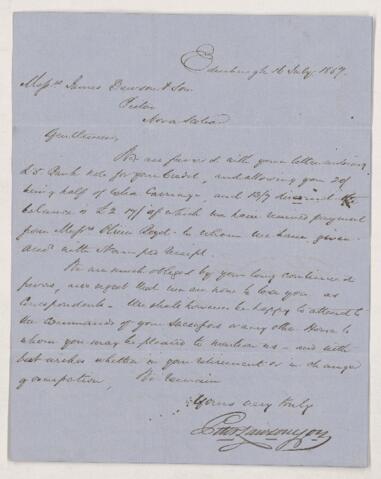 Edinburgh 16 July 1867.
Messrs James Dawson & Son
Pictou
Nova Scotia
Gentlemen,
We are favored with your letter
£5 Bank note for your Credit, and allowing you 2/
being half of Carriage, and 13/7 discount the
balance is £2 17/1 of which we have received payment
from Messrs Oliver & Boyd - to whom we have given
with Stamped receipt.
We are much obliged by your long continued
favors, and regret that we are now to lose you as
Correspondents - We shall however be happy to attend to
the Commands of your Successors or any other House to
whom you may be pleased to mention us - and with
best wishes whether in your retirement or in change
of occupation, We remain
Yours very truly
Peter Lawson & Son